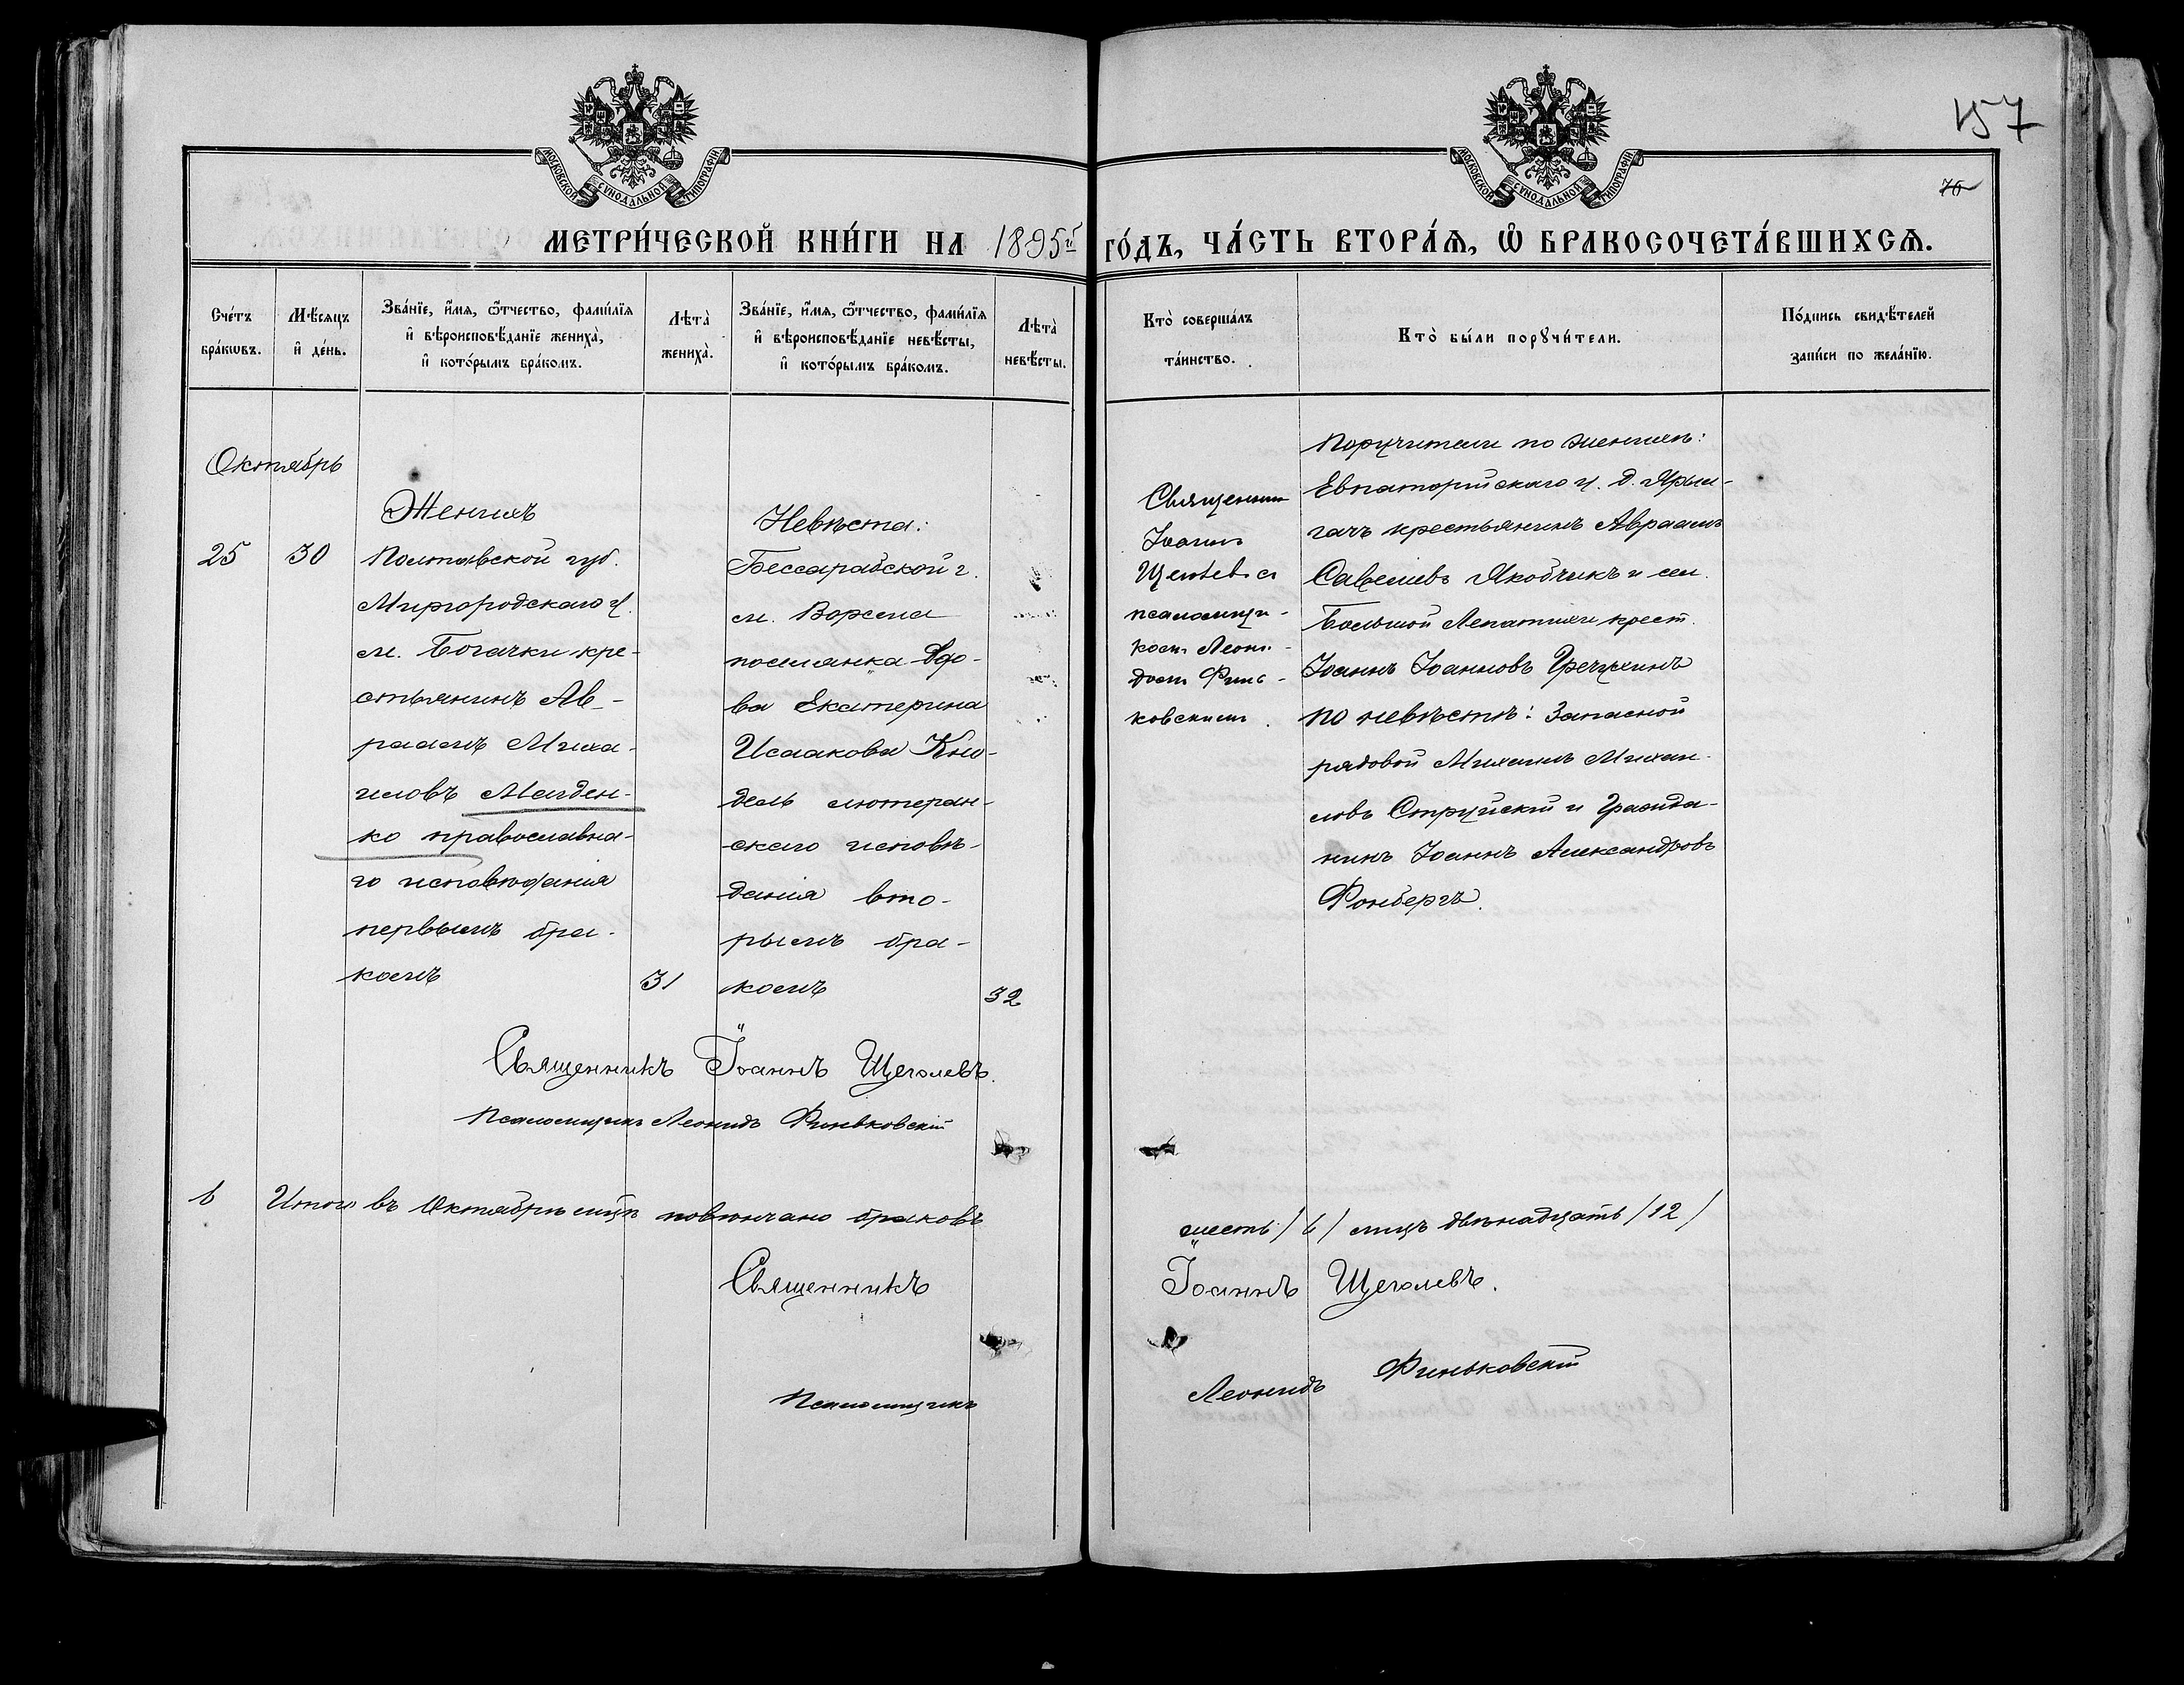 157
76
МОСКОВСКОЙ СУНОДАЛЬНОЙ ТИПОГРАФІИ
МОСКОВСКОЙ СУНОДАЛЬНОЙ ТИПОГРАФІИ
МЕТРИ́ЧЕСКОЙ КНИ́ГИ НА 1895й ГО́ДЪ, ЧА́СТЬ ВТОРА́Я, Ѡ БРАКОСОЧЕТА́ВШИХСЯ.
Сче́тъ
бра́кѡвъ.
Мѣ́сяцъ
и҆ де́нь.
Зва́нїе, и҆́мя, ѻ҆́тчество, фами́лїя
и҆ вѣроисповѣ́данїе жениха̀,
и҆ кото́рымъ бра́комъ.
Лѣта̀
жениха̀.
Зва́нїе, и҆́мя, ѻ҆́тчество, фами́лїя
и҆ вѣроисповѣ́данїе невѣ́сты,
и҆ кото́рымъ бра́комъ.
Лѣта̀
невѣ́сты.
Кто̀ соверша́лъ
та́инство.
Кто̀ бы́ли порꙋчи́тели.
По́дпись свидѣ́телей
за́писи по жела́нїю.
Октябрь
25
30
Женихъ
Полтавской губ.
Миргородскаго у.
м. Богачки кре-
стьянинъ Ав-
раамъ Миха-
иловъ Магден-
ко православна-
го исповѣданія
первымъ бра-
комъ
31
Невѣста:
Бессарабской г.
поселянка вдо-
ва Екатерина
Исаакова Кно-
дель лютеран-
скаго исповѣ-
данія вто-
рымъ бра-
комъ
32
Священник
Іоаннъ
Щеголевъ съ
псаломщи-
комъ Леони-
домъ Финь-
ковскимъ.
Поручители по женихѣ:
Евпаторійскаго у. д. Ярыл-
гачъ крестьянинъ Авраамъ
Савелiевъ Якобчикъ и сел.
Большой Лепатихи крест.
Іоаннъ Іоанновъ Гречухинъ
по невѣстѣ: Запасной
рядовой Михаилъ Михаи-
ловъ Струйскій и Гражда-
нинъ Іоаннъ Александровъ
Фонбергъ.
Священникъ Іоаннъ Щеголевъ.
Псаломщикъ Леонидъ Финьковскій
6 Итого въ Октябрѣ мцѣ повѣнчано браковъ шесть /6/ лицъ двѣнадцать /12/
Священникъ Іоаннъ Щеголевъ.
Псаломщикъ Леонидъ Финьковскій